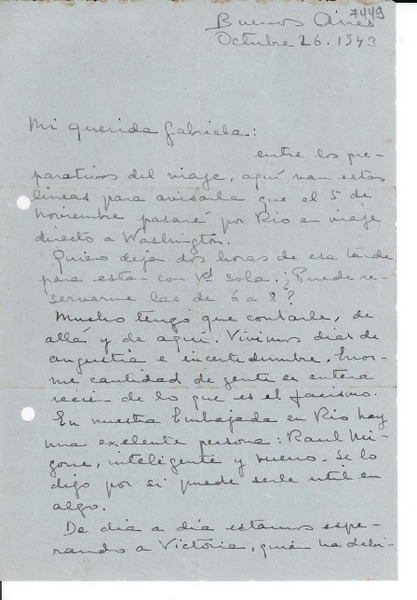 7449
Buenos Aires
Octubre 26. 1943
Mi querida Gabriela:
entre los pre-
parativos del viaje, aquí van estas
líneas para avisarle que el 5 de
noviembre pasaré por Río en viaje
directo a Washington.
Quiero dejar dos horas de esa tarde
para estar con Vd sola. ¿Puede re-
servarme las de 6 a 8?
Mucho tengo que contarle, de
allá y de aquí. Vivimos días de
angustia e incertidumbre. Enor-
me cantidad de gente se entera
recién de lo que es el facismo.
En nuestra Embajada en Río hay
una exelente persona: Raul Mi-
gone, inteligente y bueno. Se lo
digo por si puede serle util en
algo.
De día a día estamos espe-
rando a Victoria, quien ha debi-